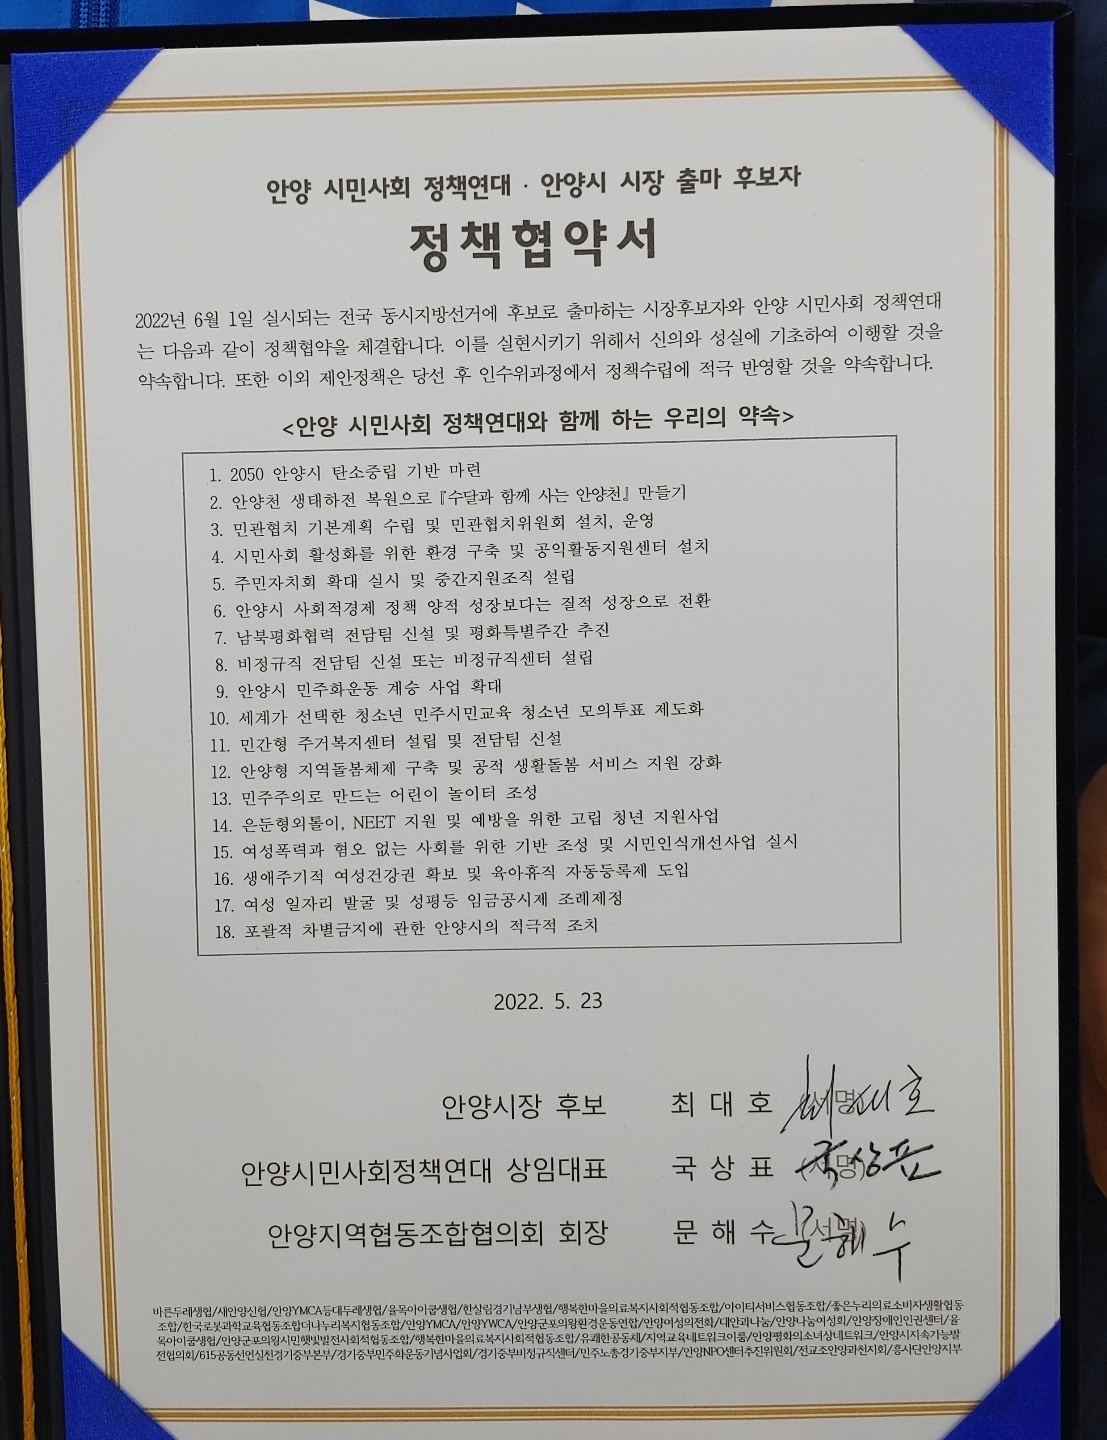 안양 시민사회 정책연대 · 안양시 시장 출마 후보자
정책협약서
2022년 6월 1일 실시되는 전국 동시지방선거에 후보로 출마하는 시장후보자와 안양 시민사회 정책연대
는 다음과 같이 정책협약을 체결합니다. 이를 실현시키기 위해서 신의와 성실에 기초하여 이행할 것을
약속합니다. 또한 이외 제안정책은 당선 후 인수위과정에서 정책수립에 적극 반영할 것을 약속합니다.
<안양 시민사회 정책연대와 함께 하는 우리의 약속>
1. 2050 안양시 탄소중립 기반 마련
2. 안양천 생태하전 복원으로 『수달과 함께 사는 안양천』 만들기
3. 민관협치 기본계획 수립 및 민관협치위원회 설치, 운영
4. 시민사회 활성화를 위한 환경 구축 및 공익활동지원센터 설치
5. 주민자치회 확대 실시 및 중간지원조직 설립
6. 안양시 사회적경제 정책 양적 성장보다는 질적 성장으로 전환
7. 남북평화협력 전담팀 신설 및 평화특별주간 추진
8. 비정규직 전담팀 신설 또는 비정규직센터 설립
9. 안양시 민주화운동 계승 사업 확대
10. 세계가 선택한 청소년 민주시민교육 청소년 모의투표 제도화
11. 민간형 주거복지센터 설립 및 전담팀 신설
12. 안양형 지역돌봄체제 구축 및 공적 생활돌봄 서비스 지원 강화
13. 민주주의로 만드는 어린이 놀이터 조성
14. 은둔형외톨이, NEET 지원 및 예방을 위한 고립 청년 지원사업
15. 여성폭력과 혐오 없는 사회를 위한 기반 조성 및 시민인식개선사업 실시
16. 생애주기적 여성건강권 확보 및 육아휴직 자동등록제 도입
17. 여성 일자리 발굴 및 성평등 임금공시제 조례제정
18. 포괄적 차별금지에 관한 안양시의 적극적 조치
2022. 5. 23
안양시장 후보 최 대 호 (서명) 최대호
안양시민사회정책연대 상임대표 국 상 표 (서명) 국상표
안양지역협동조합협의회 회장 문 해 수 (서명) 문해수
바른두레생협/새안양신협/안양YMCA등대두레생협/율목아이쿱생협/한살림경기남부생협/행복한마을의료복지사회적협동조합/아이티서비스협동조합/좋은누리의료소비자생활협동
조합/한국로봇과학교육협동조합더나누리복지협동조합/안양YMCA/안양YWCA/안양군포의왕환경운동연합/안양여성의전화/대안과나눔/안양나눔여성회/안양장애인인권센터/율
목아이쿱생협/안양군포의왕시민햇빛발전사회적협동조합/행복한마을의료복지사회적협동조합/유쾌한공동체/지역교육네트워크이룸/안양평화의소녀상네트워크/안양시지속가능발
전협의회/615공동선언실천경기중부본부/경기중부민주화운동기념사업회/경기중부비정규직센터/민주노총경기중부지부/안양NPO센터추진위원회/전교조안양과천지회/흥사단안양지부